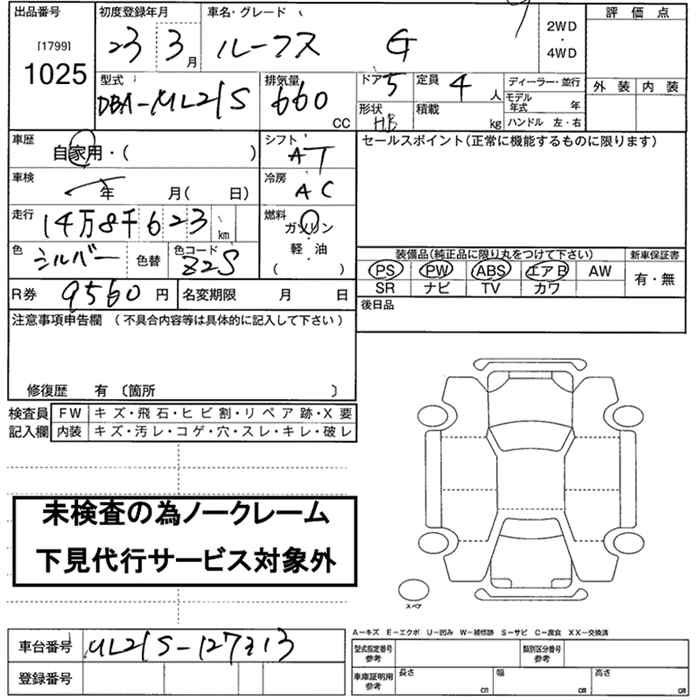 出品番号 初度登録年月 車名・グレード 評価点
[1799] 23 3月 ルークス G 2WD・4WD
1025
型式 排気量 ドア 5 定員 4人 ディーラー・並行 外装 内装
DBA-ML21S 660 CC 形状 HB 積載 kg モデル年式 年
ハンドル 左・右
車歴 自家用・( ) シフト AT セールスポイント(正常に機能するものに限ります)
車検 年 月( 日) 冷房 AC
走行 14万8千623km 燃料 ガソリン
色 シルバー 色替 色コード Z2S 軽・油
( )
装備品(純正品に限り丸をつけて下さい) 新車保証書
PS PW ABS エアB AW 有・無
SR ナビ TV カワ
R券 9560円 名変期限 月 日 後日品
注意事項申告欄(不具合内容等は具体的に記入して下さい)
修復歴 有〔箇所 〕
検査員 FW キズ・飛石・ヒビ割・リペア跡・X要
記入欄 内装 キズ・汚レ・コゲ・穴・スレ・キレ・破レ
未検査の為ノークレーム
下見代行サービス対象外
スペア
A−キズ E−エクボ U−凹み W−補修跡 S−サビ C−腐食 XX−交換済
車台番号 ML21S-127213 型式指定番号 参考 類別区分番号 参考
登録番号 車庫証明用 参考 長さ cm 幅 cm 高さ cm